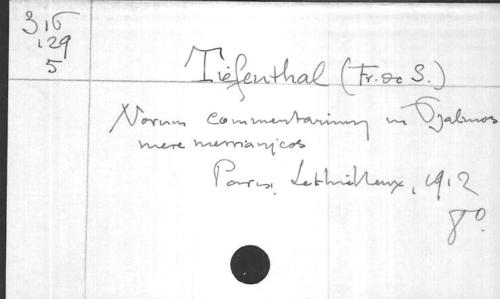 316
129
5
Tiefenthal (Fr. de S.)
Novum commentarium in Psalmos
mere messianicos
Paris, Lethielleux, 1912
8º